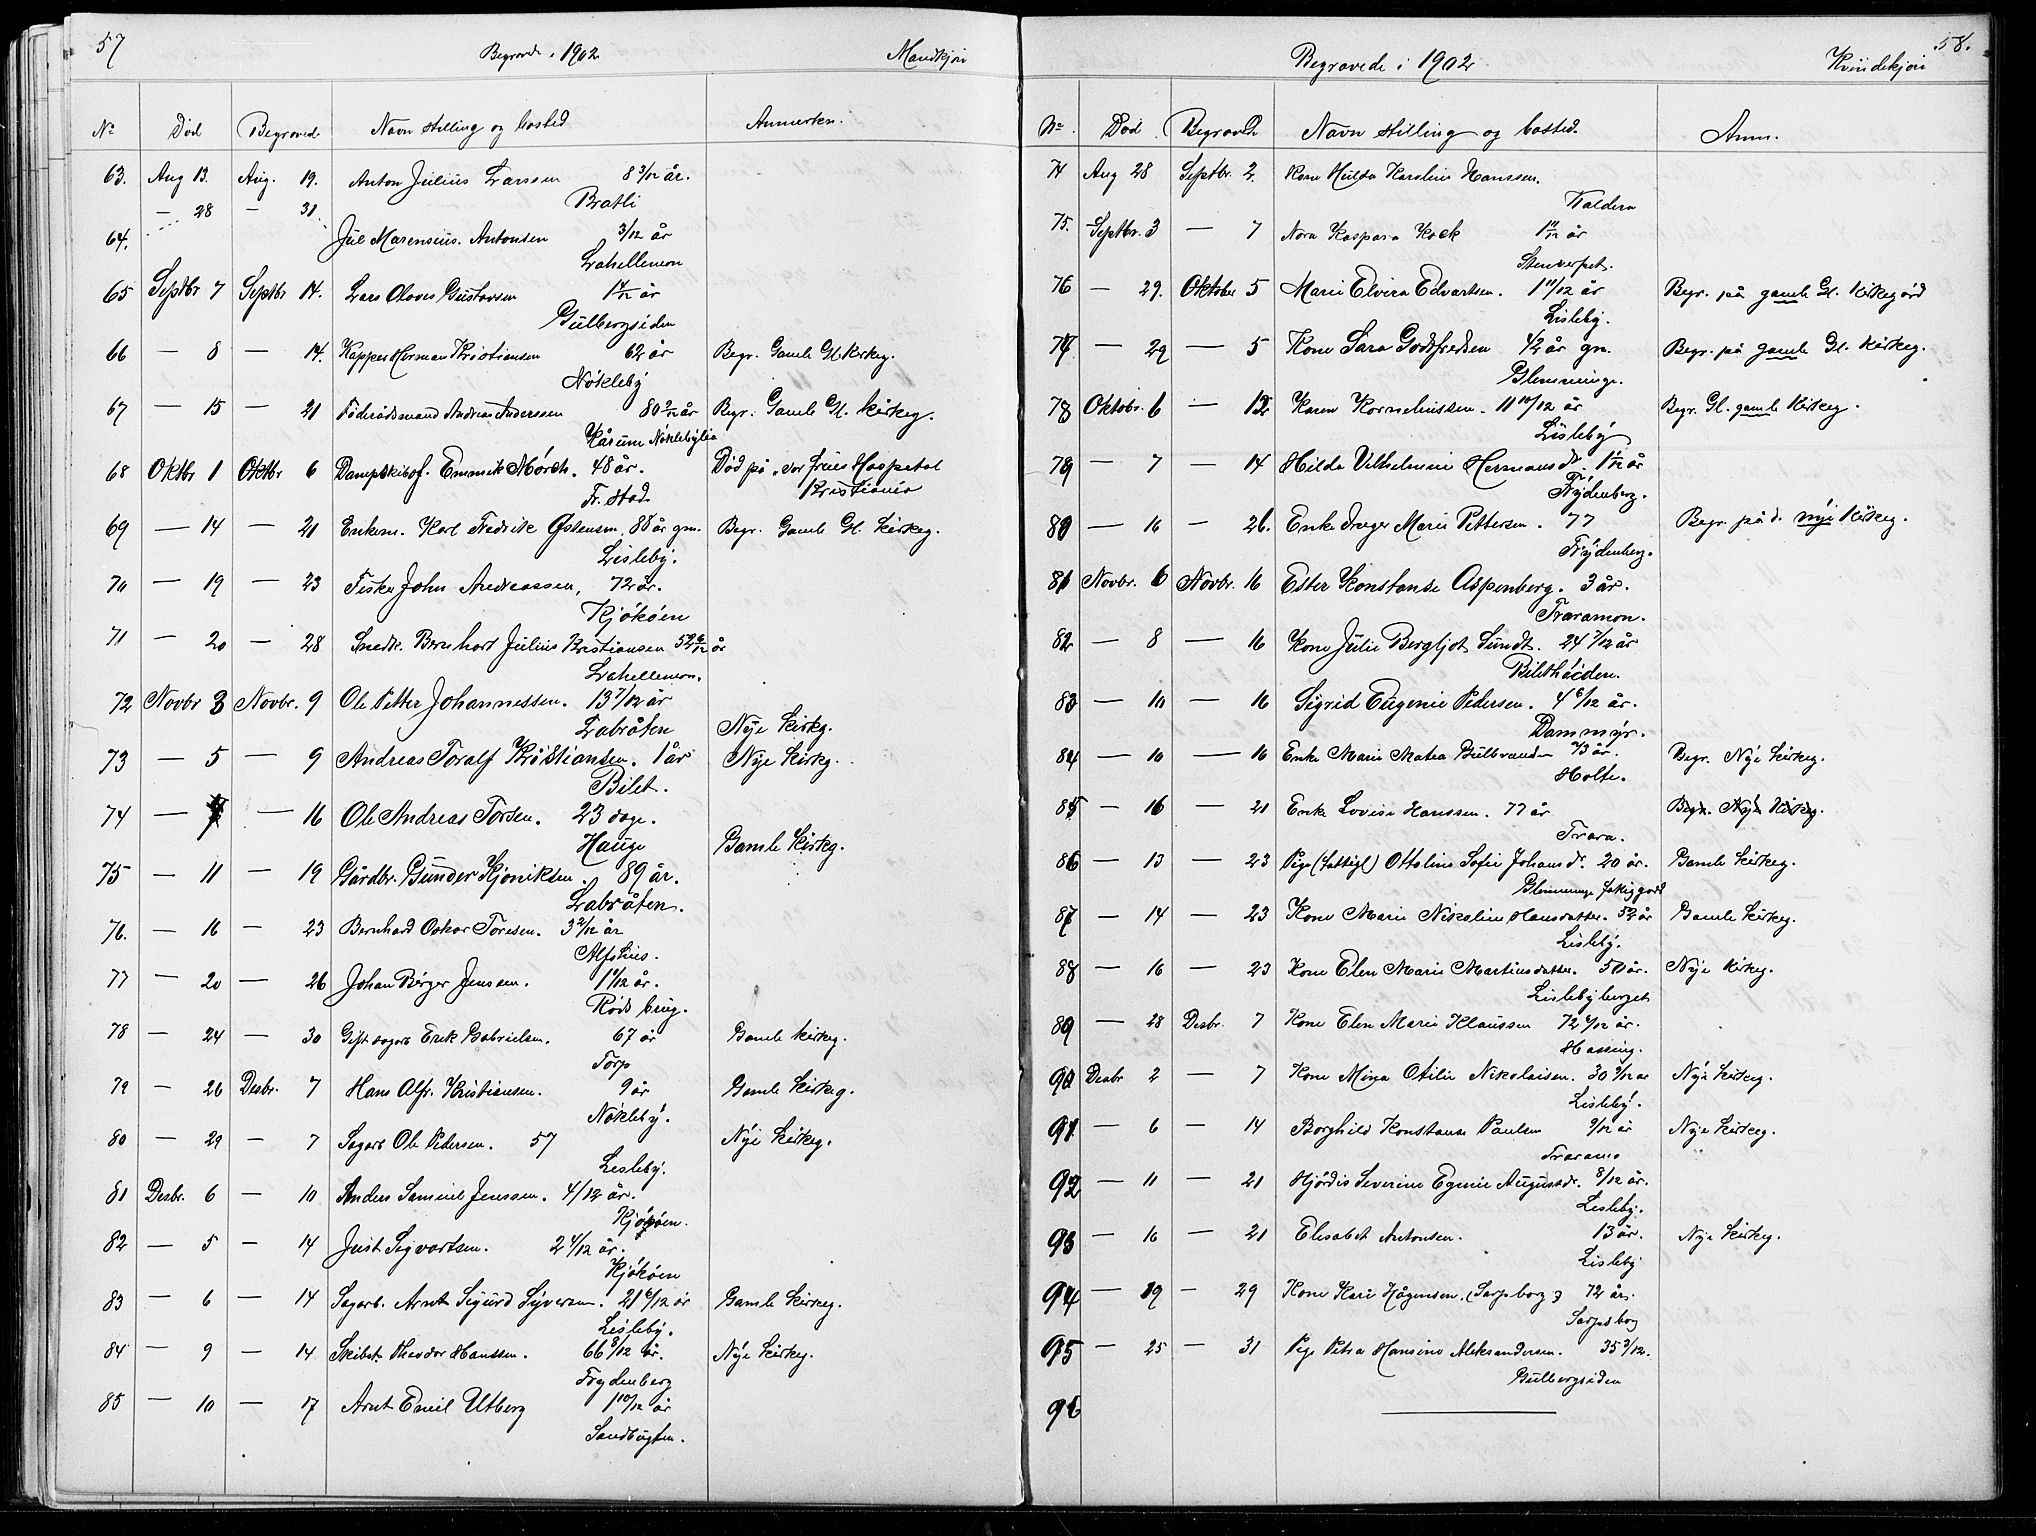 57
Begravede i 1902
Mandkjøn
No Død Begravede Navn stilling og bosted Anmerkn.
63. Aug 13. Aug. 19. Anton Julius Larssen 8 3/12 år.
Bratli
64. — 28 — 31. Jul Marensius Antonsen 3/12 år
Lahellemon
65 Septbr 7 Septbr 14. Lars Olaves Gustavsen år
Gulbergsiden
66 — 8 — 14. Herman Kristiansen 62 år Begr. Gamle Gl. Kirkeg.
Nøkleby
67 — 15 — 21 Føderådsmand Andreas Anderssen 80 2/12 år Begr. Gamle Gl. Kirkeg.
Nøklebylia
68 Oktbr 1 Oktbr 6 Dampskibsf. Emmik Mørch. 48 år. Død på vor frues Hospital
Fr. stad. Kristiania
69 — 14 — 21 Enkem. Karl Fredrik Østensen. 88 år gm. Begr. Gamle Gl. Kirkeg.
Lisleby.
70 — 19 — 23 Fisker John Andreassen, 72 år.
Kjøkøen
71 — 20 — 28 Snedk. Bernhart Julius Kristiansen 52 år
Lahellemon.
72 Novbr 3 Novbr. 9 Ole Petter Johannessen. 13 7/12 år
Labråten Nye Kirkg.
73 — 5 — 9 Andreas Toralf Kristiansen. 1 år Nye Kirkg.
Bilet.
74 — 7 — 16 Ole Andreas Torsen. 23 dage.
Hauge Gamle Kirkg.
75 — 11 — 19 Gårdbr. Gunder Kjøniksen. 89 år.
Labråten.
76. — 16 — 23 Bernhard Oskar Toresen. 3 2/12 år
Alfshus.
77 — 20 — 26 Johan Birger Jenssen. 1 1/12 år.
Røds brug.
78 — 24 — 30 Gift sagarb Erik Gabrielsen. 67 år Gamle kirkeg.
Torp
79 — 26 Desbr. 7 Hans Alfr. Kristiansen. 9 år Gamle Kirkeg.
Nøkleby.
80 — 29 — 7 Sagarb Ole Pedersen. 57 Nye Kirkeg.
Lisleby.
81 Desbr. 6 — 10 Anders Samuel Jenssen. 4/12 år.
Kjøkøen.
82 — 5 — 14 Just Sigvartsen. 2 4/12 år.
Kjøkøen
83 — 6 — 14 Sagarb. Arnt Sigurd Syversen. 21 6/12 år Gamle Kirkeg.
Lisleby.
84 — 9 — 14 Skibst. Theodor Hanssen. 66 8/12 år. Nye Kirkeg.
Frydenberg
85 — 10 — 17 Arnt Emil Utberg 1 10/12 år
Sandbugten.
58.
Begravede i 1902
Kvindekjøn
No. Død Begravede Navn stilling og bosted. Anm.
74 Aug 28 Septbr. 2. Kone Hulda Karoline Hanssen.
Faldera
75. Septbr. 3 — 7 Nora Kaspara Kock år
76 — 29. Oktober 5 Marie Elvira Edvartsen. 1 11/12 år Begr. på gamle Gl. Kirkegård
Lisleby.
77 — 29 — 5 Kone Sara Godtfredsen 42 år gm. Begr. på gamle Gl. Kirkeg.
Glemminge.
78 Oktobr. 6 — 12 Karen Kornelinssen. 11 10/12 år Begr. Gl. gamle Kirkeg.
Lisleby
79 — 7 — 14 Hilda Vilhelmine Hermansdt. 1 1/12 år
Frydenberg.
80 — 16 — 26. Enke Marie Pettersen. 77 Begr. på d. nye Kirkeg.
Frydenberg.
81 Novbr. 6 Novbr. 16 Ester Konstanse Aspenberg. 3 år.
Traramon.
82 — 8 — 16 Kone Julie Bergljot Sundt. 24 7/12 år
Bilethöiden.
83 — 10 — 16 Sigrid Eugenie Pedersen. 4 6/12 år.
Dammyr.
84 — 10 — 16 Enke Maria Matea Gulbrands 73 år. Begr. Nye Kirkeg.
Holte.
85 — 16 — 21 Enke Lovise Hanssen. 77 år Begr. Nye Kirkeg.
Trara.
86 — 13 — 23 Pige (fattigl) Ottoline Sofie Johansdt. 20 år. Gamle Kirkeg.
Glemminge fatiggård
87 — 14 — 23 Kone Marie Nikoline Hansdatter. 52 år Gamle Kirkeg.
Lisleby.
88 — 16 — 23 Kone Elen Marie Martinsdatter. 50 år. Nye Kirkeg.
Lislebyberget
89 — 28 Desbr. 7 Kone Elen Marie Klaussen 72 6/12 år.
Hassing.
90 Desbr 2 — 7 Kone Mina Otilie Nikolaisen. 30 2/12 år Nye Kirkeg.
Lisleby.
91 — 6 — 14 Borghild Konstanse Paulsen 9/12 år Nye Kirkeg.
Traramo
92 — 11 — 21 Hjørdis Severine Egenie Augustdt. 8/12 år.
Lisleby.
93 — 16 — 21 Elisabet Antonsen. 13 år. Nye Kirkeg.
Lisleby
94 — 19 — 29 Kone Kari Hågensen. (Sarpsborg) 72 år.
Sarpsborg
95 — 25 — 31 Pige Petra Hansine Aleksandersen. 35 3/12.
Gulbergsiden
96